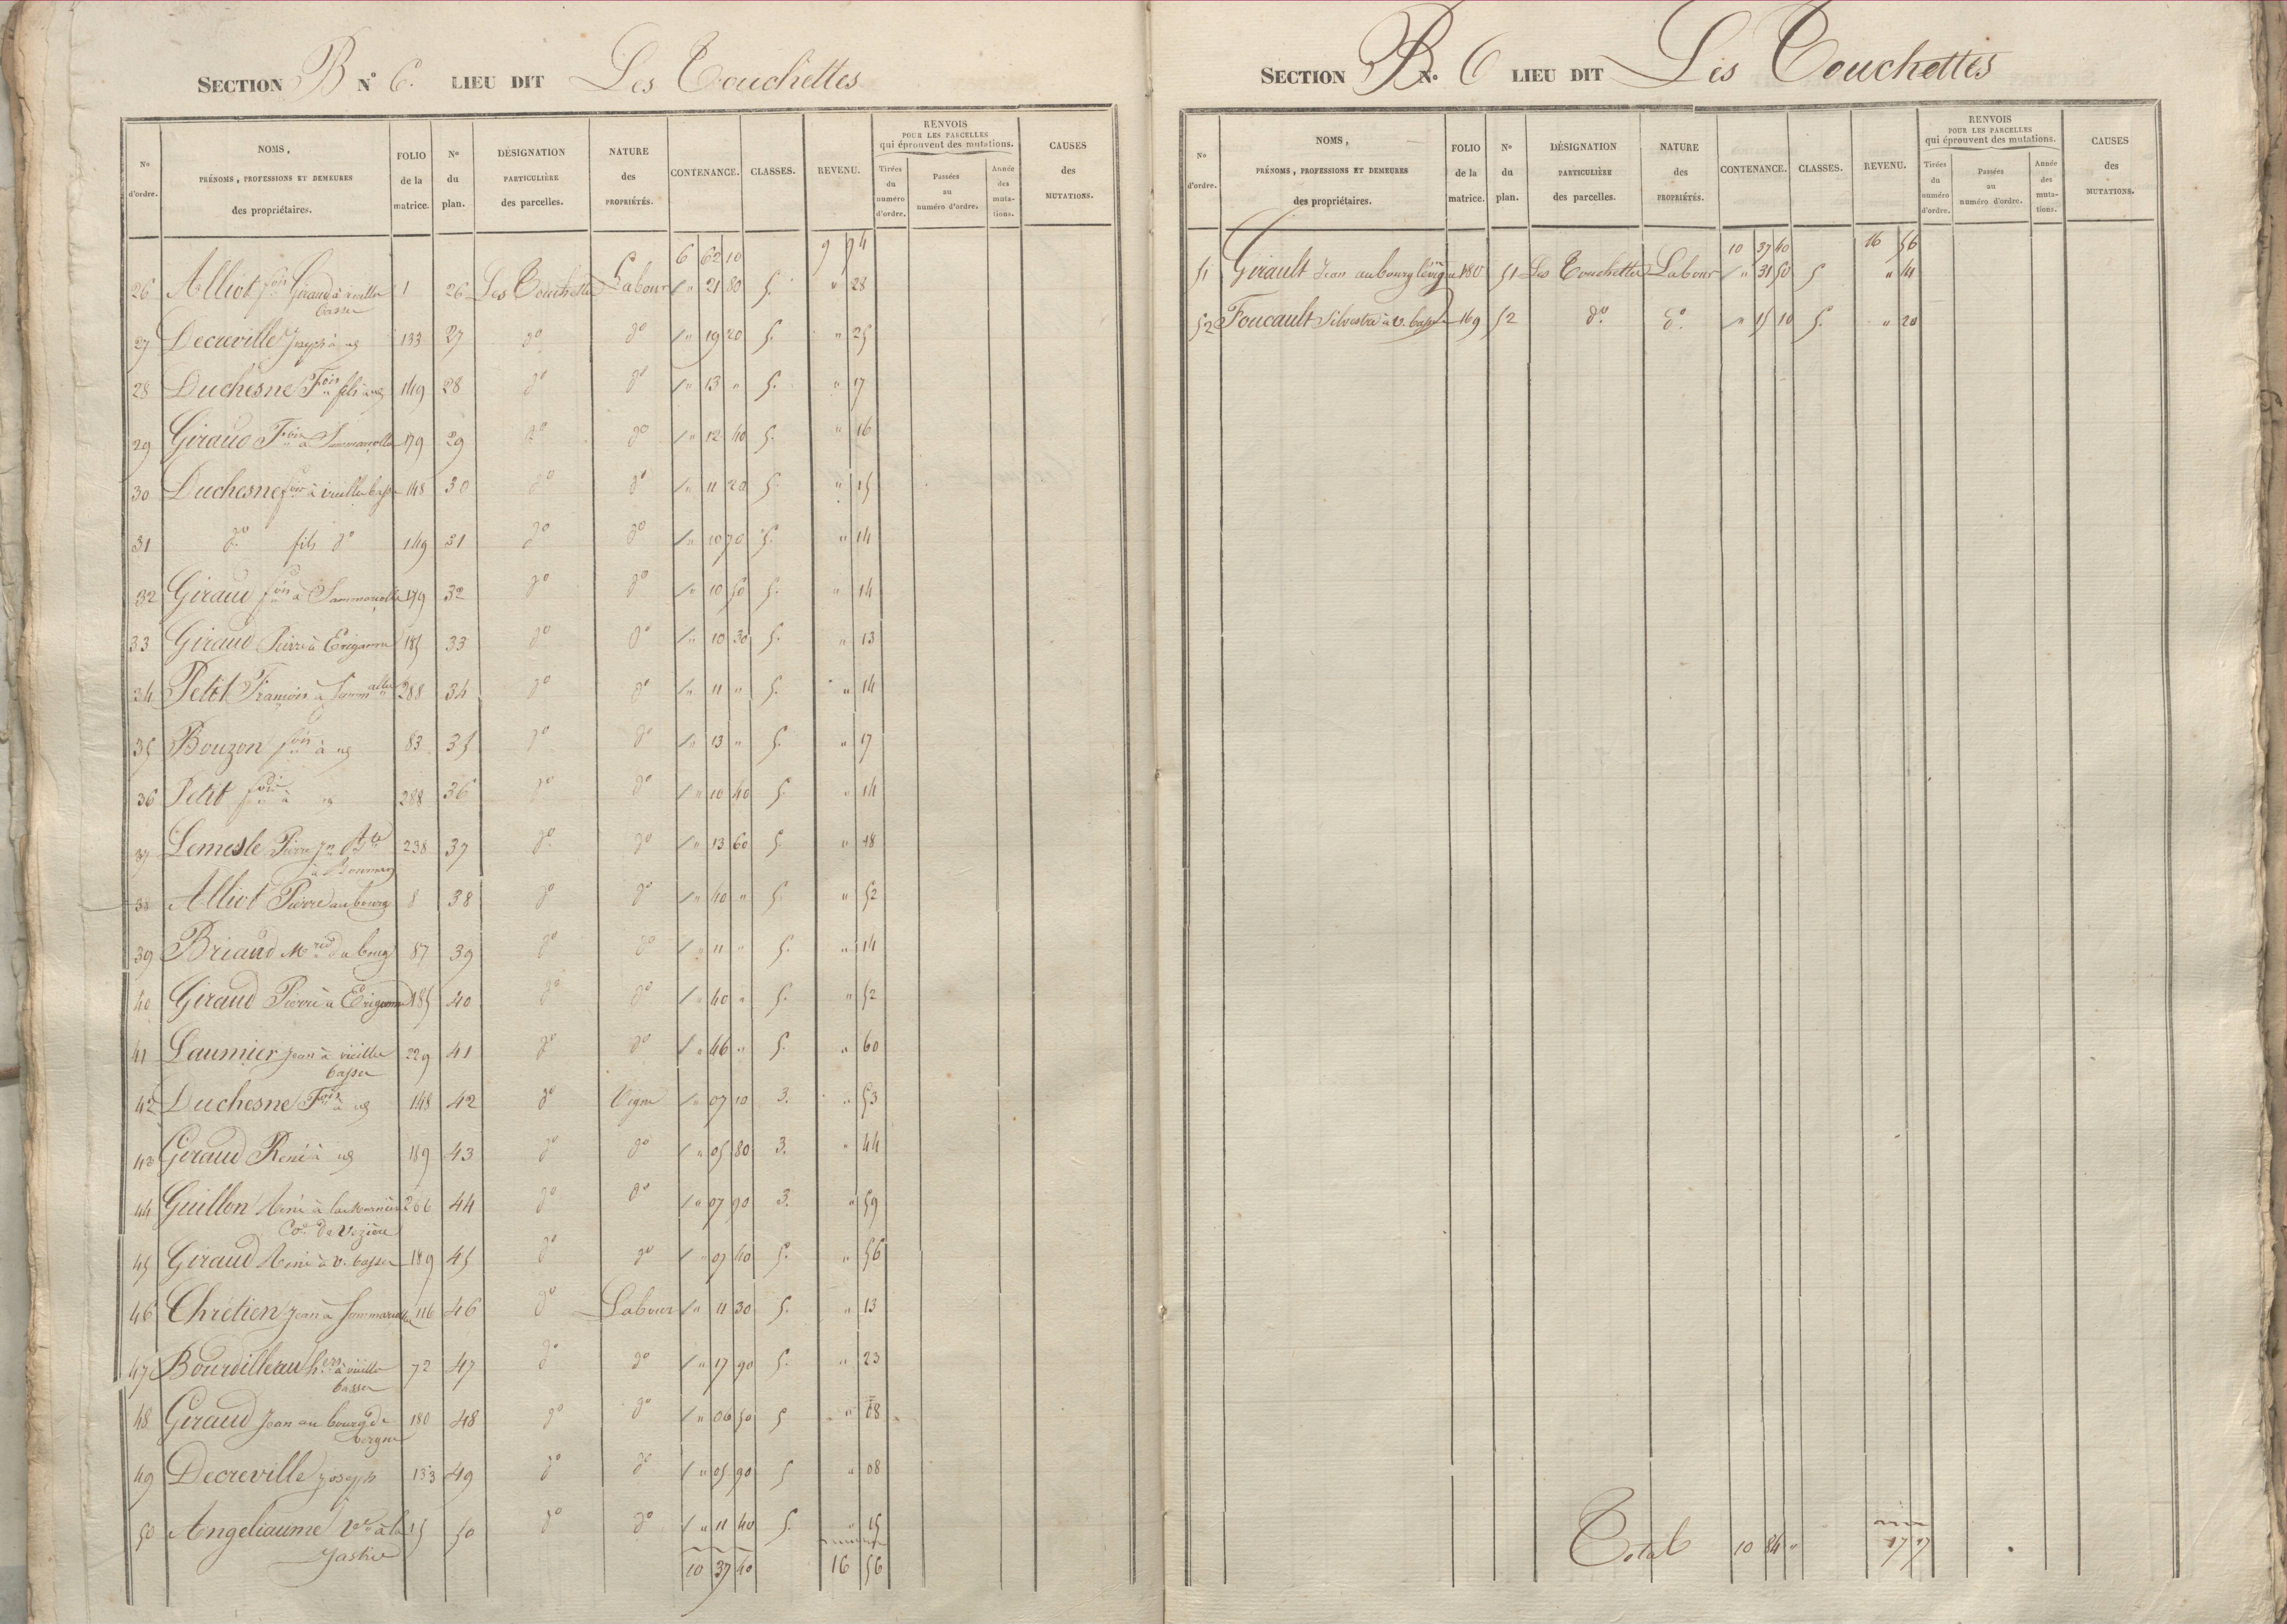 SECTION B N° 6. LIEU DIT Les Touchettes
No d'ordre. NOMS, PRÉNOMS, PROFESSIONS ET DEMEURES des propriétaires. FOLIO de la matrice. No du plan. DÉSIGNATION PARTICULIÈRE des parcelles. NATURE des PROPRIÉTÉS. CONTENANCE. CLASSES. REVENU. RENVOIS POUR LES PARCELLES qui éprouvent des mutations. Tirées du numéro d'ordre. Passées au numéro d'ordre. Année des mutations. CAUSES des MUTATIONS.
6 62 10 9 94
26 Alliot fois Giraud à vieilles basses 1 26 Les Touchettes Labour " 21 80 5. " 28
27 Decreville Joseph à 133 27 do do " 19 20 5. " 25
28 Duchesne Fois fils à 149 28 do do " 13 " 5. " 17
29 Giraud Fois à Sammarcolles 179 29 do do " 12 40 5. " 16
30 Duchesne fois à vieilles basses 148 30 do do " 11 20 5. " 15
31 do fils do 149 31 do do " 10 70 5. " 14
32 Giraud fois à Sammarcolles 179 32 do do " 10 50 5. " 14
33 Giraud Pierre à 185 33 do do " 10 30 5. " 13
34 Petit François à 288 34 do do " 11 " 5. " 14
35 Bouzon fois à 83 35 do do " 13 " 5. " 17
36 Petit fois à 288 36 do do " 10 40 5. " 14
37 Lemesle Pierre Jn Bte à 238 37 do do " 13 60 5. " 18
38 Alliot Pierre au bourg 8 38 do do " 40 " 5. " 52
39 Briaud au bourg 87 39 do do " 11 " 5. " 14
40 Giraud Pierre à 185 40 do do " 40 " 5. " 52
41 Laumier Jean à vieilles basses 229 41 do do " 46 " 5. " 60
42 Duchesne Fois à 148 42 do Vigne " 07 10 3. " 53
43 Giraud René à 189 43 do do " 05 80 3. " 44
44 Guillon René à Cne de Vezière 206 44 do do " 07 90 3. " 59
45 Giraud René à v. basses 189 45 do do " 07 40 5. " 56
46 Chrétien Jean à Sommarcolles 116 46 do Labour " 11 30 5. " 13
47 Bourdilleau hers à vieilles basses 72 47 do do " 17 90 5. " 23
48 Giraud Jean au bourg de 180 48 do do " 06 50 5 " 08
49 Decreville Joseph 133 49 do do " 05 90 5 " 08
50 Angeliaume Ve à la 15 50 do do " 11 40 5. " 15
10 37 40 16 56
SECTION B No. 6 LIEU DIT Les Touchettes
No d'ordre. NOMS, PRÉNOMS, PROFESSIONS ET DEMEURES des propriétaires. FOLIO de la matrice. No du plan. DÉSIGNATION PARTICULIÈRE des parcelles. NATURE des PROPRIÉTÉS. CONTENANCE. CLASSES. REVENU. RENVOIS POUR LES PARCELLES qui éprouvent des mutations. Tirées du numéro d'ordre. Passées au numéro d'ordre. Année des mutations. CAUSES des MUTATIONS.
10 37 40 16 56
51 Girault Jean au bourg 180 51 Les Touchettes Labour " 31 50 5 " 41
52 Foucault Silvestre à v. basses 169 52 do. do. " 15 10 5. " 20
Total 10 84 " 17 17